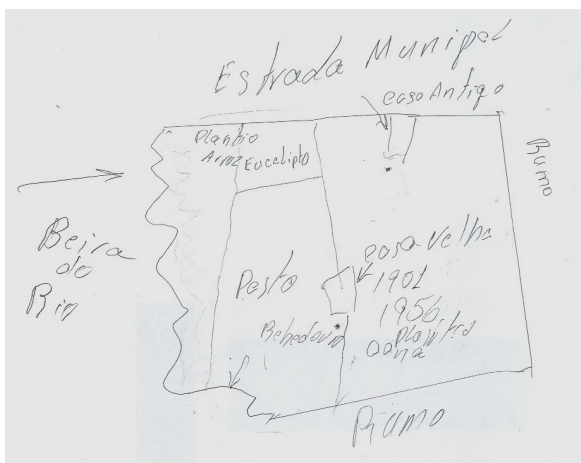 Estrada Munipal
casa Antiga
Plantio
Arroz
Eucalipto
Rumo
Beira
do
Rio
Pasto
casa velha
1901
1956
Bebedouro
Rumo